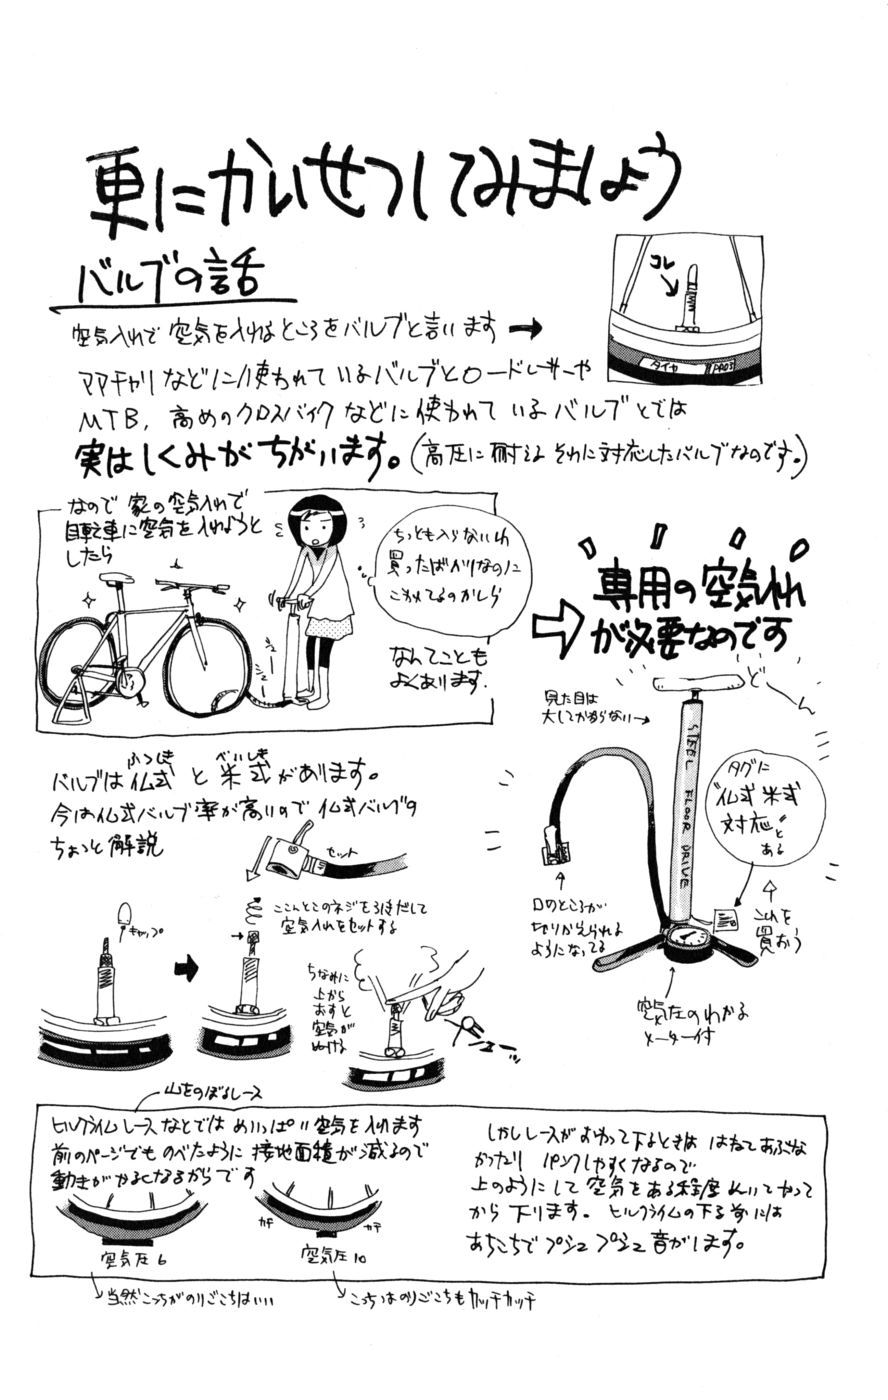 更にかいせつしてみましょう
バルブの話
空気入れで空気を入れるところをバルブと言います
コレ
タイヤ
ママチャリなどに使われているバルブとロードレーサーや
MTB、高めのクロスバイクなどに使われているバルブとでは
実はしくみがちがいます。(高圧に耐えるそれに対応したバルブなのです。)
なので家の空気入れで
自転車に空気を入れようと
したら
シュー
シュー
ちっとも入らないわ
買ったばかりなのに
こわれてるのかしら
なんてことも
よくあります。
専用の空気入れ
が必要なのです
どーん
見た目は
大してかわらない
STEEL FLOOR DRIVE
タグに
“仏式米式
対応”と
ある
これを
買おう
口のところが
切りかえられる
ようになってる
空気圧のわかる
メーター付
バルブは仏式と米式があります。
ふつしき
べいしき
今は仏式バルブ率が高いので仏式バルブの
ちょっと解説
セット
キャップ
ここんとこのネジをひきだして
空気入れをセットする
ちなみに
上から
おすと
空気が
ぬける
山をのぼるレース
ヒルクライムレースなどではめいっぱい空気を入れます
前のページでものべたように接地面積が減るので
動きがかるくなるからです
空気圧6
カチ
カチ
空気圧10
しかしレースがおわって下るときははねてあぶな
かったりパンクしやすくなるので
上のようにして空気をある程度ぬいてやって
から下ります。ヒルクライムの下る前には
あちこちでプシュプシュ音がします。
当然こっちがのりごこちはいい
こっちはのりごこちもカッチカッチ